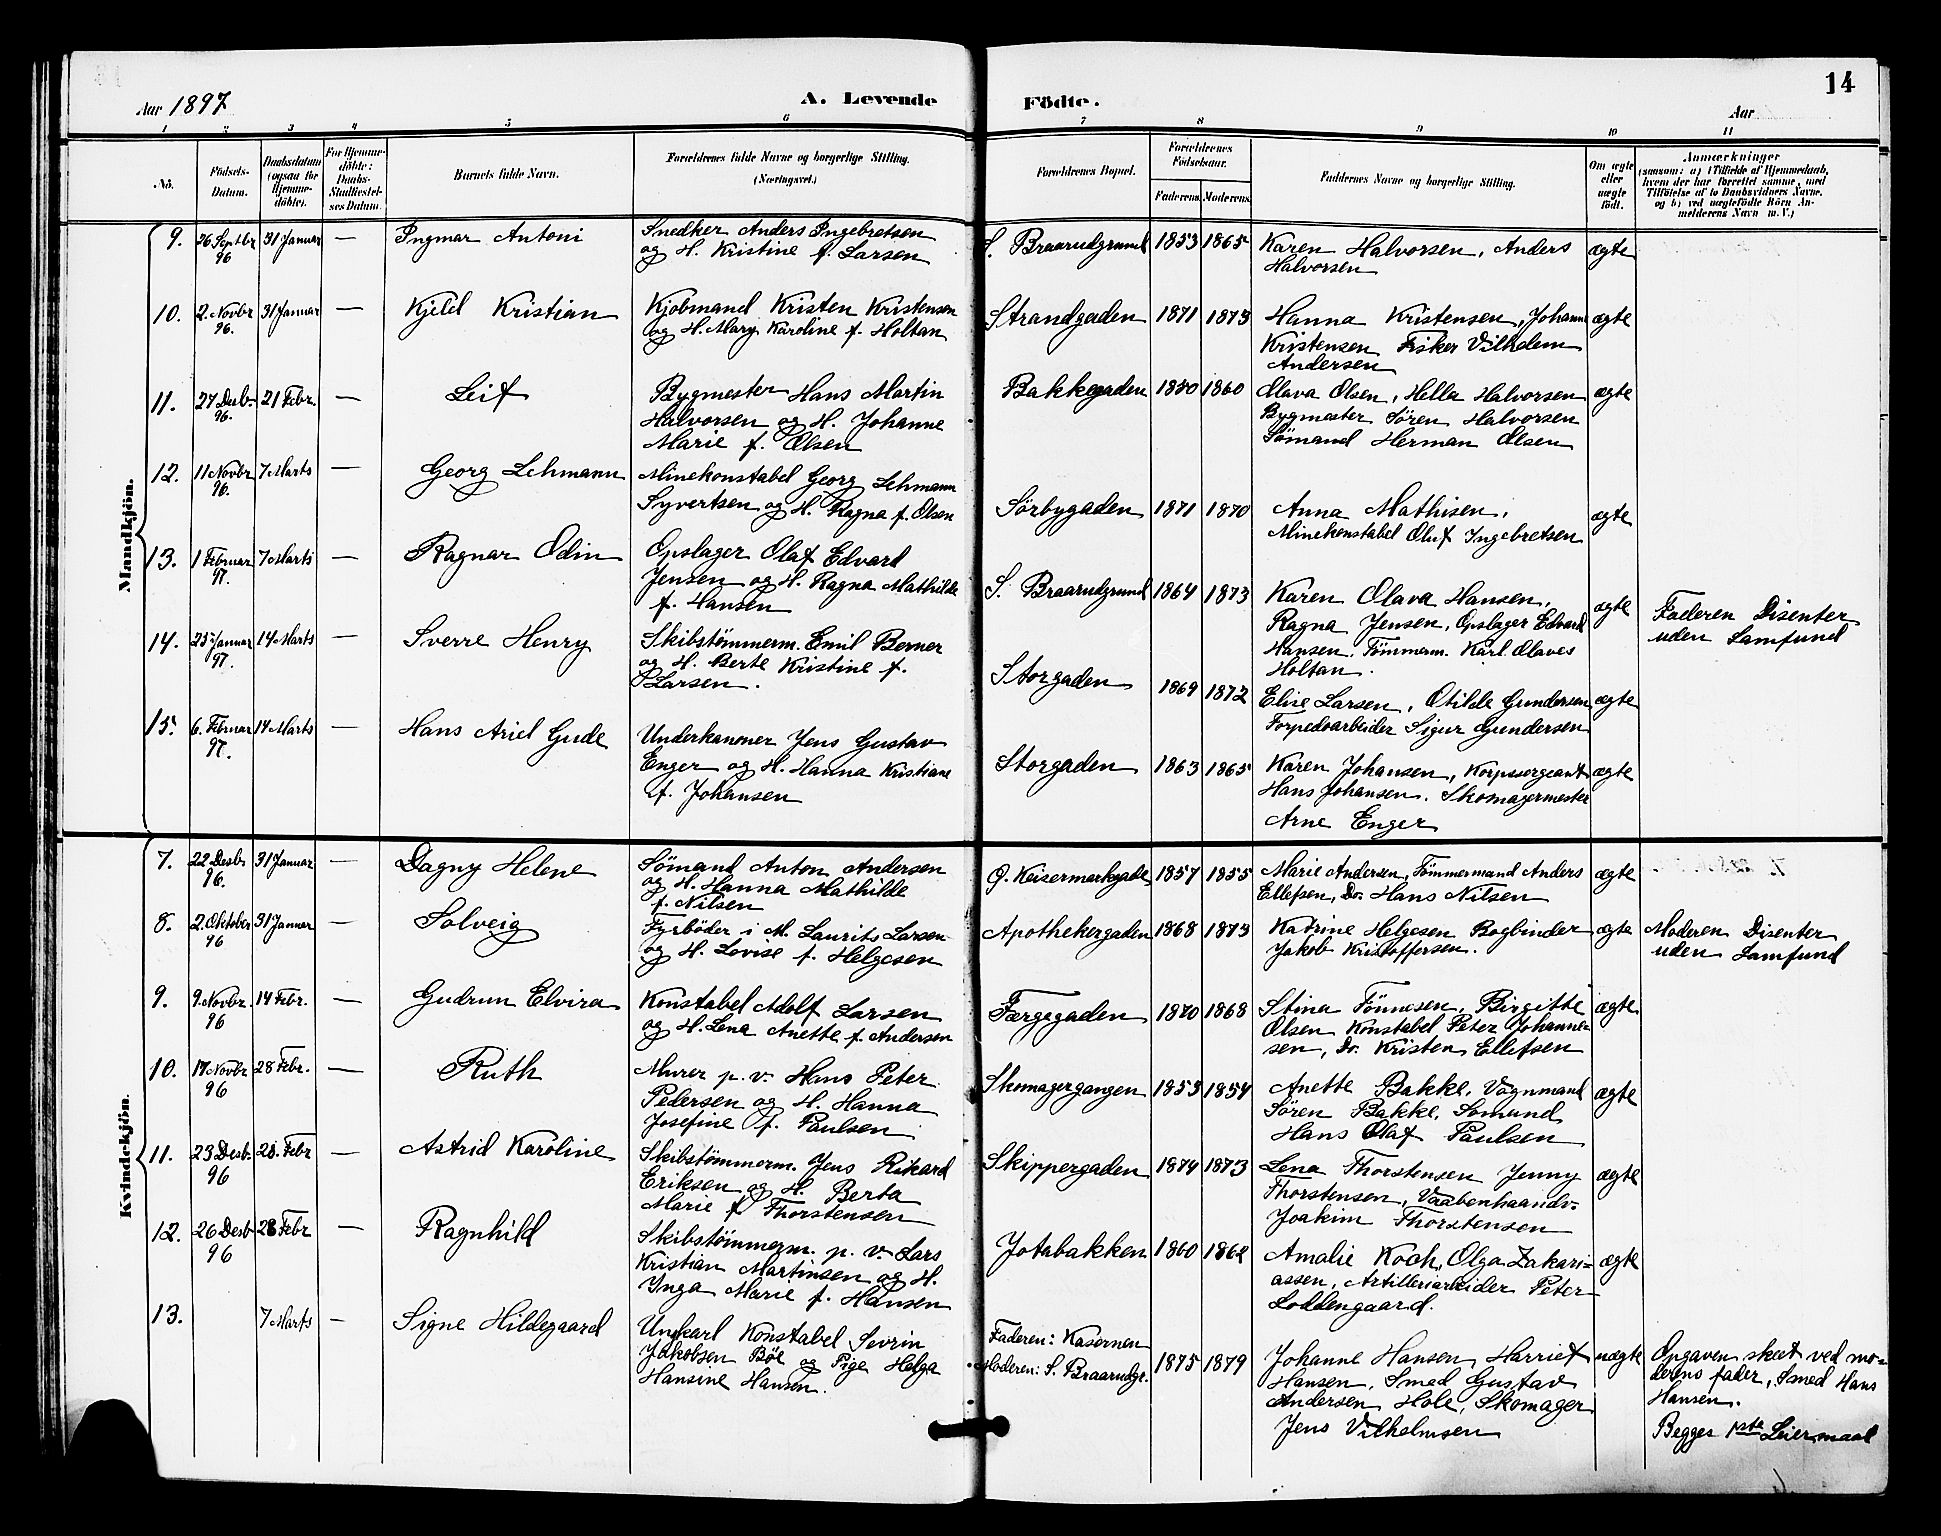 14
Aar 1897
A. Levende Födte.
Aar
1 2 3 4 5 6 7 8 9 10 11
No. Födsels-Datum. Daabsdatum (ogsaa for Hjemme-döbte). For Hjemme-döbte: Daabs-Stadfæstel-ses Datum. Barnets fulde Navn. Forældrenes fulde Navne og borgerlige Stilling. (Næringsvei.) Forældrenes Bopæl. Forældrenes Födselsaar. Faderens Moderens Faddernes Navne og borgerlige Stilling. Om ægte eller uægte födt. Anmærkninger
(saasom: a) i Tilfælde af Hjemmedaab, hvem der har forrettet samme, med Tilföielse af to Daabsvidners Navne, og b) ved uægtefödte Börn An-melderens Navn m. V.)
Mandkjön.
9. 26 Septbr 96 31 Januar — Ingmar Antoni
Snedker Anders Ingebretsen
og H. Kristine f. Larsen
S. Braarudgrund 1853 1865
Karen Halvorsen, Anders
Halvorsen
ægte
10. 2. Novbr 96. 31 Januar — Kjeld Kristian
Kjöbmand Kristen Kristensen
og H. Mary Karoline f. Holtan
Strandgaden 1871 1873
Hanna Kristensen, Johanne
Kristensen Fisker Vilhelm
Andersen
ægte
11. 27 Desb. 96. 21 Febr. — Leif
Bygmester Hans Martin
Halvorsen og H. Johanne
Marie f. Olsen
Bakkegaden 1860
Olava Olsen, Hella Halvorsen
Bygmester Søren Halvorsen
Sømand Herman Olsen
ægte
12. 11 Novbr 96. 7 Marts — Georg Lehmann
Minekonstabel Georg Lehmann
Syvertsen og H. Ragna f. Olsen
Sörbygaden 1871 1870
Anna Mathisen,
Minekonstabel Oluf Ingebretsen
ægte
13. 1 Februar 97. 7 Marts — Ragnar Odin
Opslager Olaf Edvard
Jensen og H. Ragna Mathilde
f. Hansen
S. Braarudgrund 1864 1873
Karen Olava Hansen,
Ragna Jensen, Opslager Edvard
Hansen. Tömmerm. Karl Olaves
Holtan.
ægte
Faderen Disenter
uden Samfund
14. 25 Januar 97. 14 Marts — Sverre Henry
Skibstømmerm. Emil Berner
og H. Berte Kristine f.
Larsen.
Storgaden 1869 1872
Elise Larsen, Otilde Gundersen
Torpedoarbeider Sigur Gundersen
ægte
15. 6. Februar 97. 14 Marts — Hans Ariel Gude
Underkanoner Jens Gustav
Enger og H. Hanna Kristiane
f. Johansen
Storgaden 1863 1865
Karen Johansen, Korpssergeant
Hans Johansen. Skomagermester
Arne Enger
ægte
Kvindekjön.
7. 22 Desb. 96. 31 Januar — Dagny Helene
Sømand Anton Andersen
og H. Hanna Mathilde
f. Nilsen
Ø. Keisermarkgade 1857 1855
Marie Andersen, Tömmermand Anders
Ellefsen, Do. Hans Nilsen
ægte
8. 2. Oktober 96 31 Januar — Solveig
Fyrbøder i M. Laurits Larsen
og H. Lovise f. Helgesen
Apothekergaden 1868 1873
Katrine Helgesen Bogbinder
Jakob Kristoffersen.
ægte
Moderen Disenter
uden Samfund
9. 9. Novbr 96 14 Febr. — Gudrun Elvira
Konstabel Adolf Larsen
og H. Lena Anette f. Andersen
Færgegaden 1870 1868
Stina Tönnesen, Birgitte
Olsen Konstabel Peter Johanne-
sen, Do. Kristen Ellefsen
ægte
10. 17 Novbr 96 28 Febr. — Ruth
Murer p. v. Hans Peter
Pedersen og H. Hanna
Josefine f. Paulsen
Skomagergangen 1853 1854
Anette Bakke, Vognmand
Sören Bakke, Somund
Hans Olaf Paulsen
ægte
11. 23 Desb. 96 28 Febr — Astrid Karoline
Skibstømmerm. Jens Rikard
Eriksen og H. Berta
Marie f Thorstensen
Skippergaden 1874 1873
Lena Thorstensen Jenny
Thorstensen, Vaabenhaandv-
Joakim Thorstensen
ægte
12. 26 Desb 96 28 Febr — Ragnhild
Skibstømmerm. p. v. Lars
Kristian Martinsen og H.
Inga Marie f. Hansen
Jotabakken 1860 1862
Amalie Koch, Olga Zakari-
assen, Artilleriarbeider Peter
Loddengaard.
ægte
13. 7 Marts — Signe Hildegaard
Ungkarl Konstabel Sevrin
Jakobsen Böe og Pige Helga
Hansine Hansen.
Faderen: Kasernen
Moderen: S. Braarudgr. 1875 1879
Johanne Hansen, Harriet
Hansen, Smed Gustav
Andersen Hole, Skomager
Jens Vilhelmsen
uægte
Opgaven skeet ved mo-
derens fader, Smed Hans
Hansen.
Begges 1ste Leiermaal